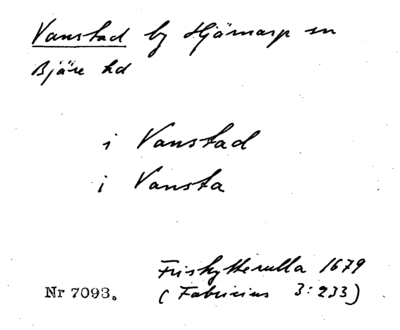 Vanstad by Hjärnarp sn
Bjäre hd
i Vanstad
i Vansta
Friskytterulla 1679
Nr 7093. (Fabricius 3:233)